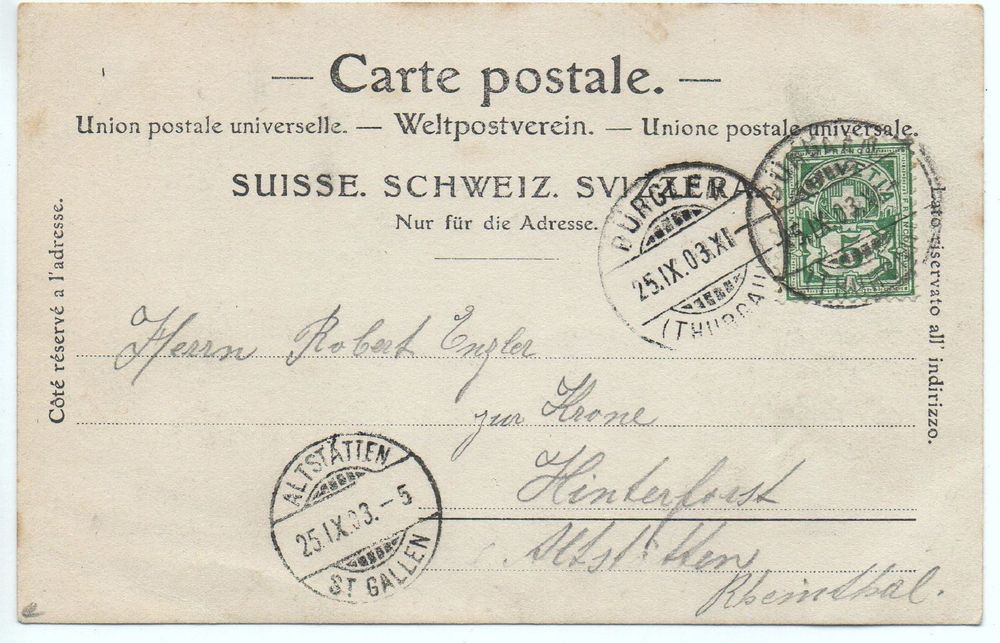 — Carte postale. —
Union postale universelle. — Weltpostverein. — Unione postale universale.
SUISSE. SCHWEIZ. SVIZZERA
Nur für die Adresse.
Côté réservé a l'adresse.
Lato riservato all' indirizzo.
HELVETIA
BÜRGLEN
25.IX.03.XI
(THURGAU)
Herrn Robert Engler
zur Krone
Hinterforst
Altstätten
Rheinthal.
ALTSTÄTTEN
25.IX.03. – 5
ST GALLEN